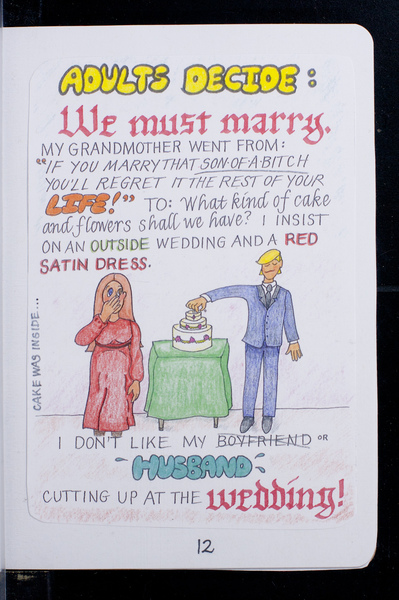 ADULTS DECIDE:
We must marry.
MY GRANDMOTHER WENT FROM:
"IF YOU MARRY THAT SON-OF-A-BITCH
YOU'LL REGRET IT THE REST OF YOUR
LIFE!" TO: What kind of cake
and flowers shall we have? I INSIST
ON AN OUTSIDE WEDDING AND A RED
SATIN DRESS.
CAKE WAS INSIDE...
I DON'T LIKE MY BOYFRIEND OR
HUSBAND
CUTTING UP AT THE wedding!
12